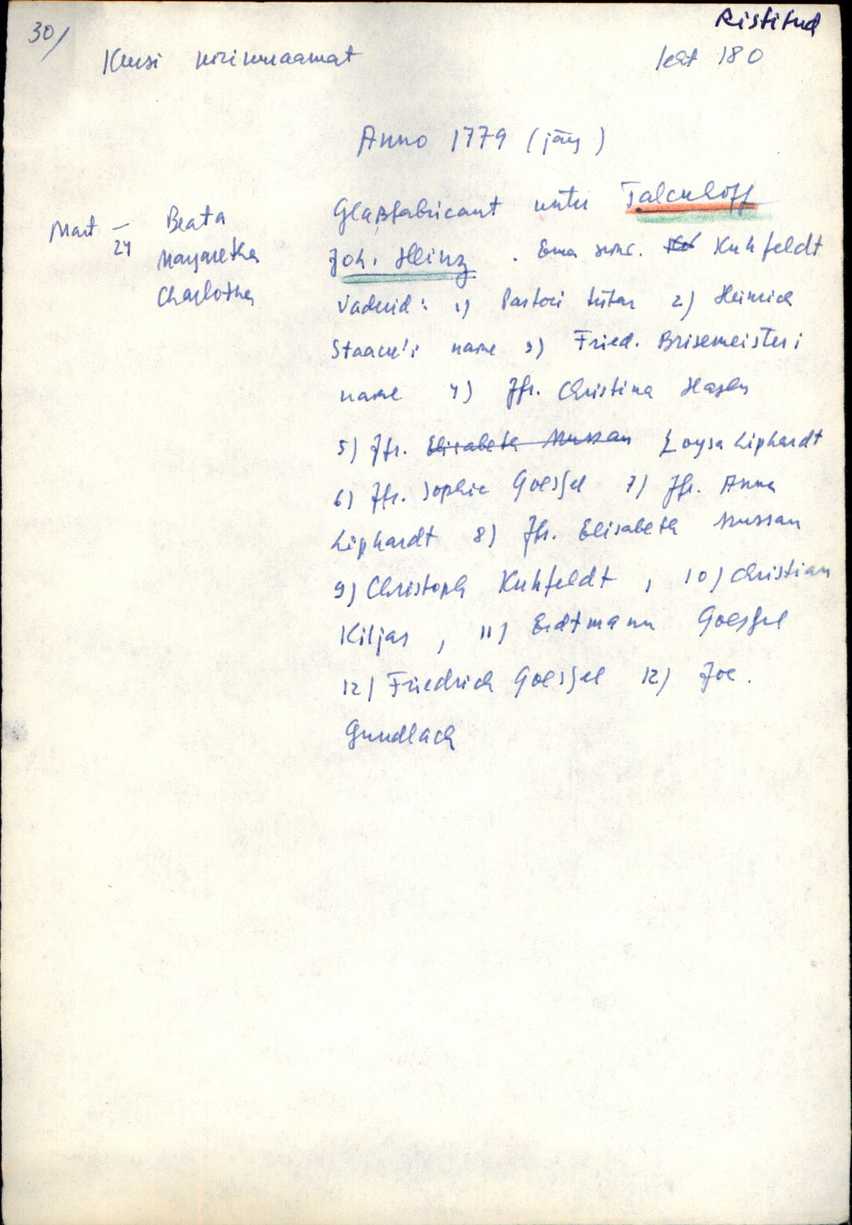 30/
Ristitud
Kursi kirikuraamat
leht 180
Anno 1779 (järg)
Mart — 24
Beata
Margaretha
Charlotha
Glaßfabricant unter Talckhoff
Joh. Heinz. Ema sünd. Kuhfeldt
Vaderid: 1) Pastori tütar 2) Heinrich
Staack'i naine 3) Fried. Brisemeisteri
naine 4) Jfr. Christina Hagen
5) Jfr. Elisabeth Mussan Loysa Liphardt
6) Jfr. Sophie Goessel 7) Jfr. Anna
Liphardt 8) Jfr. Elisabeth Mussan
9) Christoph Kuhfeldt, 10) Christian
Kiljas, 11) Erdtmann Goessel
12) Friedrich Goessel 12) Joe.
Gundlach